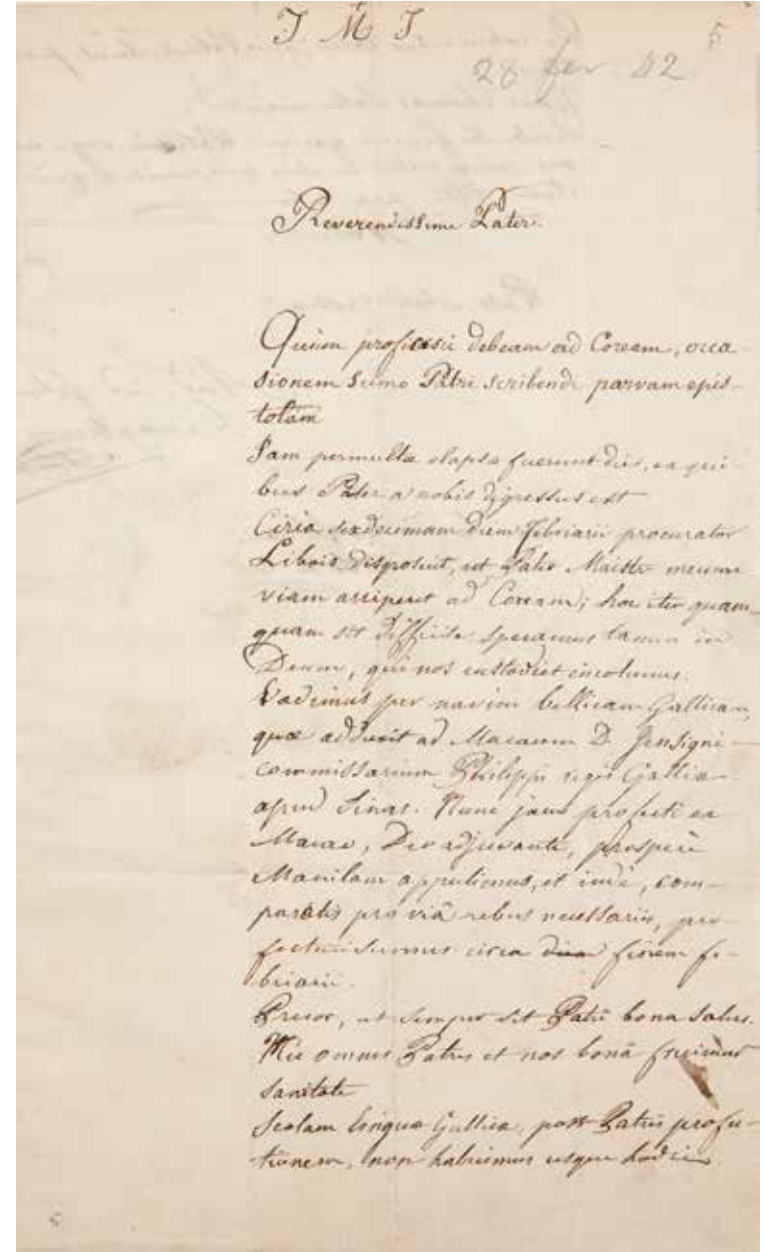 J M J
5
28 fev. 42
Reverendissime Pater.
Quum proficisci debeam ad Coream, occa-
sionem sumo Patri scribendi parvam epis-
tolam
Jam permultæ elapsæ fuerunt dies, ex qui-
bus Pater a nobis digressus est
Circa sexdecimam diem februarii procurator
Libois disposuit, ut Patr Maistr mecum
viam arriperet ad Coream; hoc iter quam-
quam sit difficile speramus tamen in
Deum, qui nos custodiet incolumes.
Vadimus per navim bellicam Gallicam,
quæ adduxit ad Macaum D. Jensigni
commissarium Philippi regis Galliæ
apud Sinas. Nunc jam profecti ex
Macao, Deo adjuvante, prosperè
Manilam appulimus, et indè, com-
paratis pro viâ rebus necessariis, pro-
fecturi sumus circa finem fe-
bruarii.
Precor, ut semper sit Patri bona salus.
Hic omnes Patres et nos bonâ fruimur
sanitate
Scolam linguæ Gallicæ, post Patris profec-
tionem, non habuimus usque hodie.
5